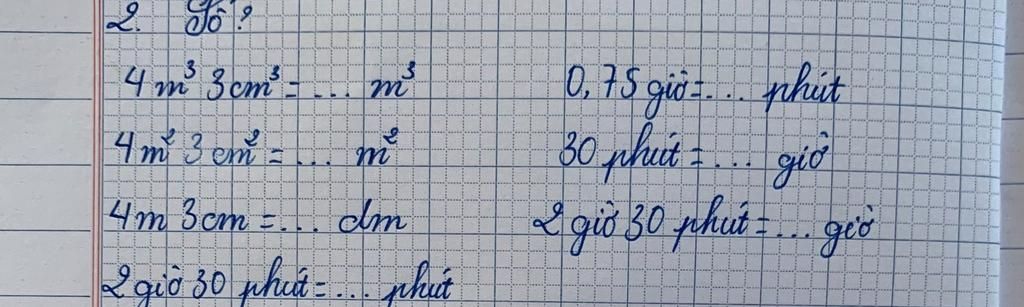 2. Số?
4 m³ 3 cm³ = ... m³ 0,75 giờ = ... phút
4 m² 3 cm² = ... m² 30 phút = ... giờ
4 m 3 cm = ... dm 2 giờ 30 phút = ... giờ
2 giờ 30 phút = ... phút